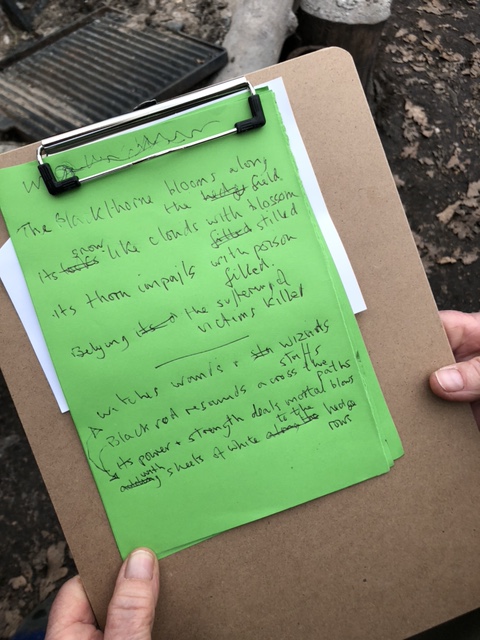 The Blackthorne blooms along
the hedge field
its looks snow like clouds with blossom
filled stilled
its thorn impails with poison
filled.
Belying its the suffering of
victims killed
Witches wands + wizards
staffs
Black rod resounds across the paths
its power + strength deals mortal blows
with sheets of white along the to the hedge
rows